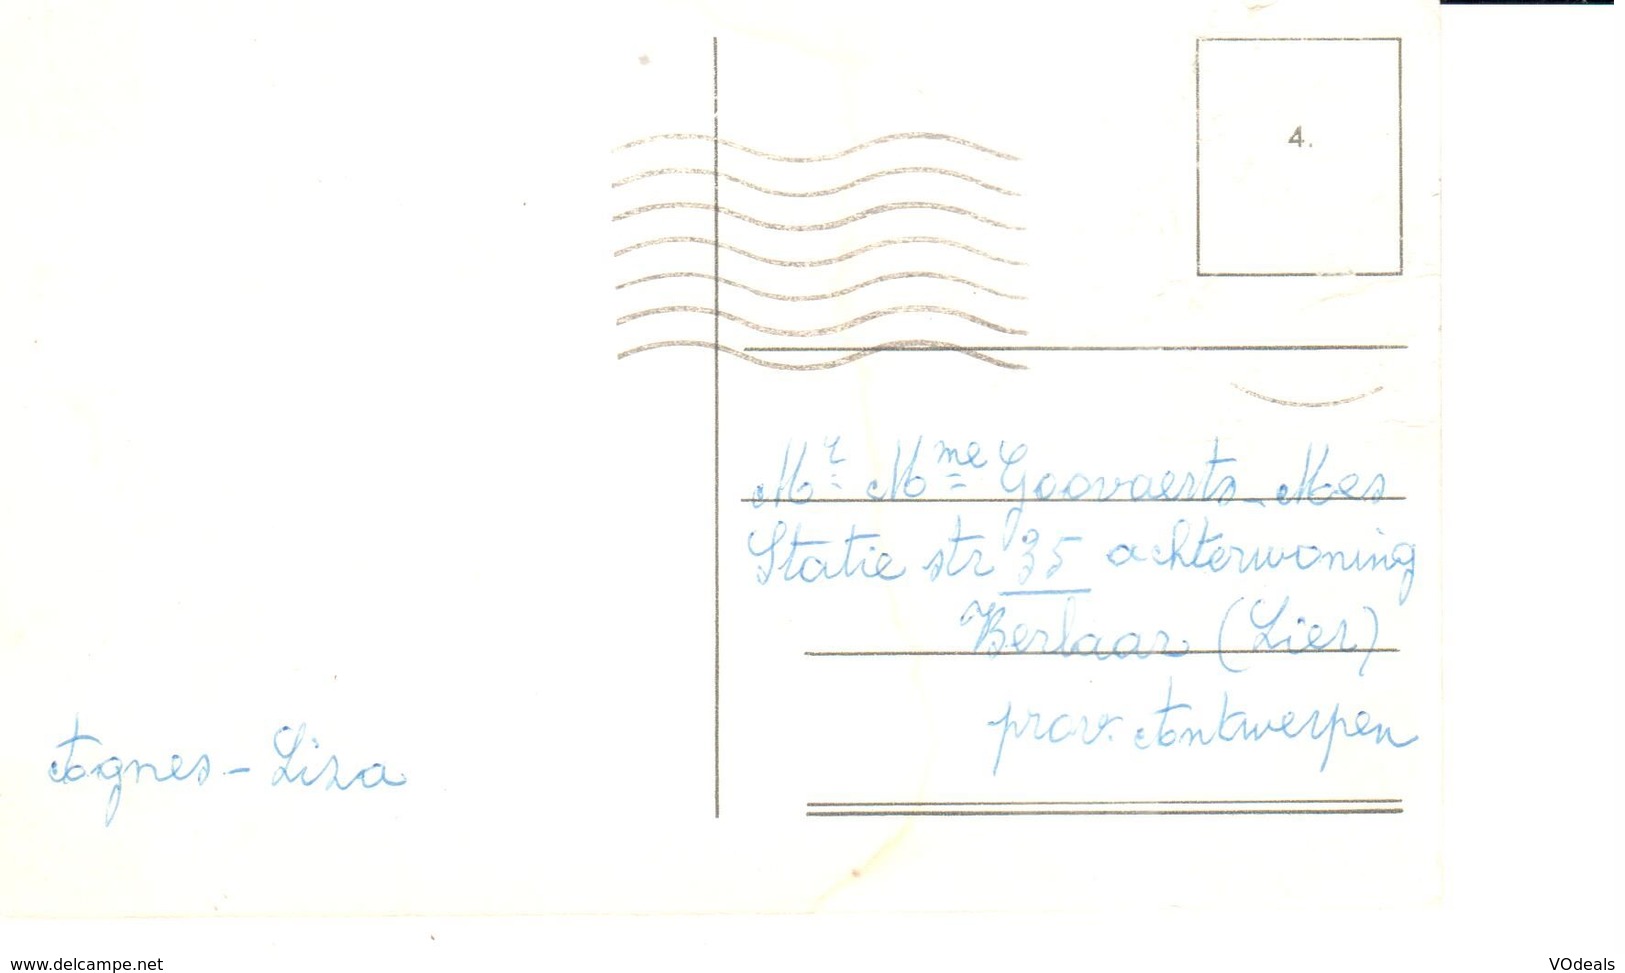 4.
Mr Mme Goovaerts-Mes
Statie str 35 achterwoning
Berlaar (Lier)
prov. Antwerpen
Agnes - Liza
www.delcampe.net
VOdeals